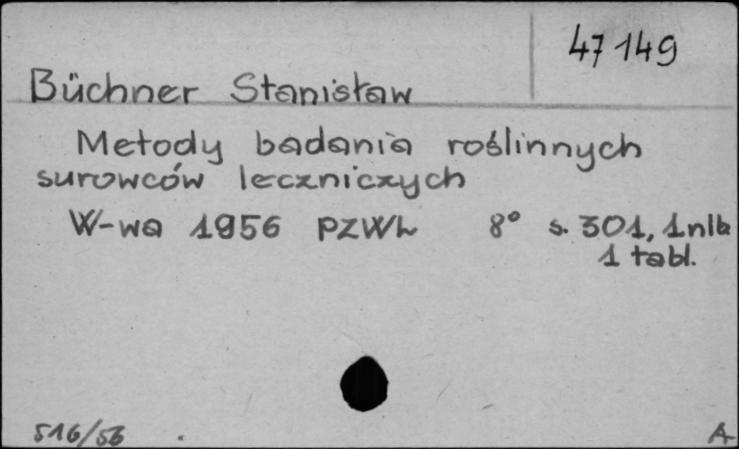 47149
Büchner Stanisław
Metody badania roślinnych
surowców leczniczych
W-wa 1956 PZWL 8° s. 301, 1 nlb
1 tabl.
516/56 A